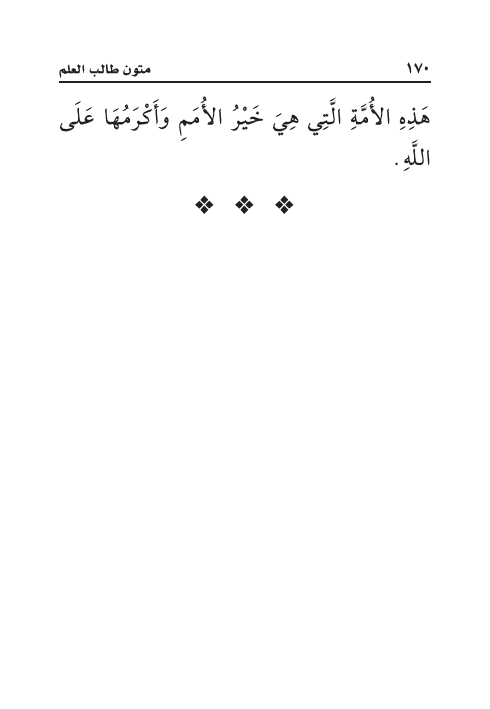 ١٧٠ متون طالب العلم
هَذِهِ الأُمَّةِ الَّتِي هِيَ خَيْرُ الأُمَمِ وَأَكْرَمُهَا عَلَى
اللَّهِ.